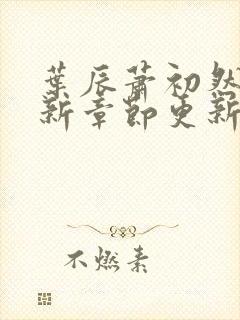 葉辰蕭初然
新章節更新
不燃素